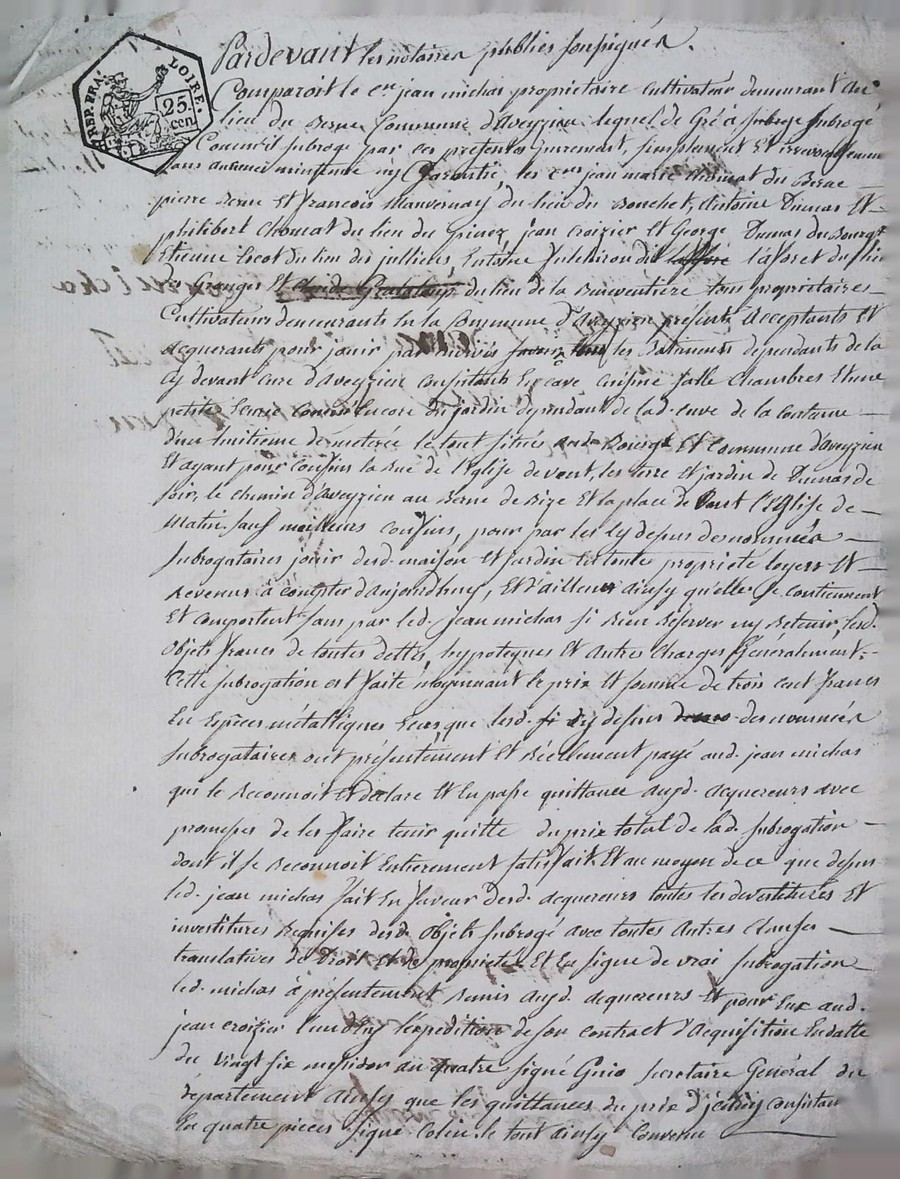 REP. FRA. LOIRE. 25. cen
Pardevant les notaires publics soussignés.
Comparoit le cen jean michas proprietaire cultivateur demeurant au
lieu du Berne Commune d'aveyzieu lequel de Gré à subrogé
Comme il subroge par ces presentes purement, simplement Et irrevocablement
sans autre maintenue ny Garantie, les cens jean marie chomat du Berne
pierre Berne Et francois Mauvernay du lieu du Bouchet, Antoine Dumas Et
philibert Chomat du lieu du jean croizier Et George Dumas du Bourg
Etienne locot du lieu des jullieux dit laforet du lieu
de Granges Et du lieu de la tous proprietaires
Cultivateurs demeurants En la Commune d'aveyzieu presents Acceptants Et
acquerants pour jouir par les Batiments dependants de la
cy devant Cure d'aveyzieu consistants En cave cuisine salle chambres Et une
petite Ecurie comme Encore du jardin dependant de lad. cure de la contenue
d'un huitieme de metrée le tout situés aud. Bourg Et Commune d'aveyzieu
Et ayant pour confins la Rue de l'Eglise de vent, les terre Et jardin de Dumas de
soir, le chemin d'aveyzieu au Berne de Bize Et la place de l'Eglise de
Matin sauf meilleurs confins, pour par les cy dessus denommés
subrogataires jouir desd. maison Et jardin En toute proprieté loyers Et
Revenus à compter d'aujourdhuy, Et d'ailleurs ainsy qu'elle se contiennent
Et comportent sans par led. jean michas si Rien Réserver ny Retenir, lesd.
Objets francs de toutes dettes, hypoteques Et autres Charges Généralement.
Cette subrogation est faite moyennant le prix Et somme de trois cent francs
En Espèces métalliques Ecus que lesd. cy dessus denommés
subrogataires ont présentement Et Réellement payé aud. jean michas
qui le Reconnoit Et déclare Et En passe quittance auxd. acquereurs avec
promesses de les faire tenir quitte du prix total de lad. subrogation
dont il se Reconnoit Entierement satisfait Et au moyen de ce que dessus
led. jean michas fait En faveur desd. acquereurs toutes les devestitures Et
investitures Requises desd. Objets subrogé avec toutes Autres Clauses
translatives de Droit Et de proprieté Et En signe de vrai subrogation
led. michas à présentement Remis auxd. acquereurs Et pour Eux aud.
jean croizier l'un d'Eux l'expedition de son contract d'Acquisition En datte
du vingt six messidor an quatre signé secretaire Général du
département ainsy que les quittances du prix d'jceluy consistant
En quatre pieces signé le tout ainsy Convenu